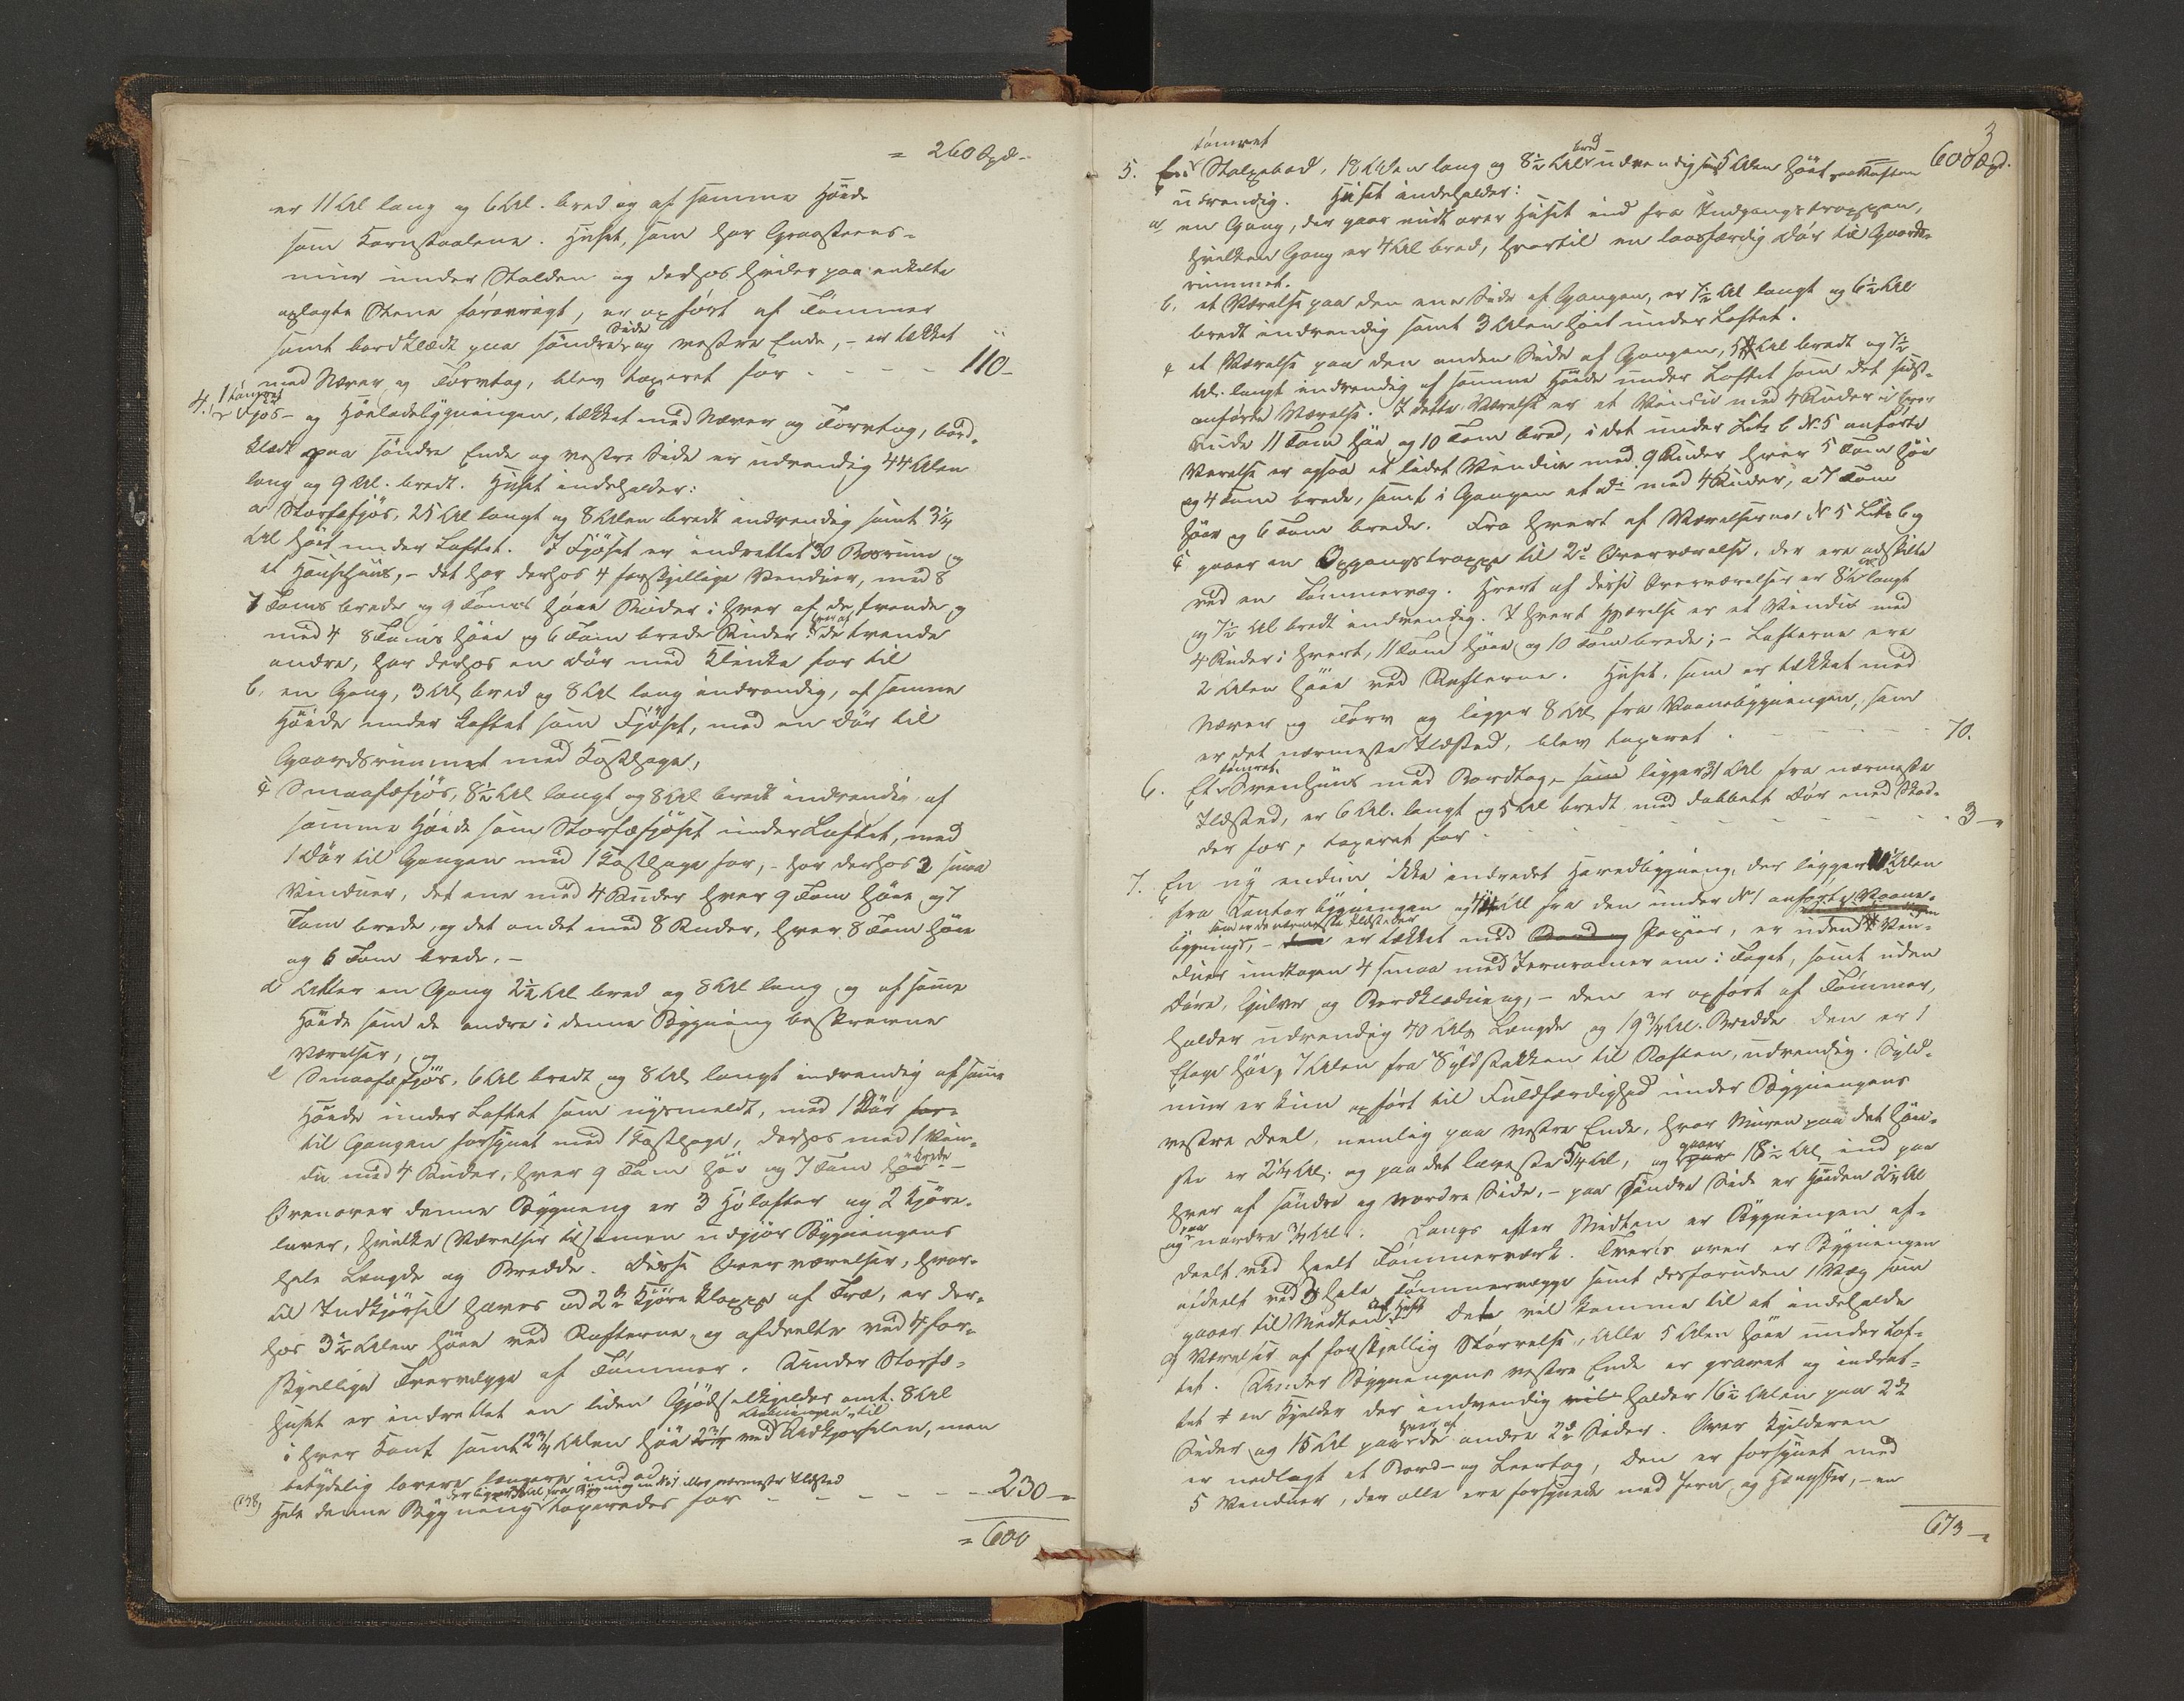 = 260 Spd.
er 11 Al lang og 6 Al. bred og af samme Höide
som Kornstaalene. Huset, som har Graasteens-
muur under Stalden og derhos hviler paa enkelte
oplagte Stene forövrigt, er opfört af Tömmer
samt bordklædt paa söndre Side og vestre Ende, - er tækket
med Næver og Torvtag, blev taxeret for - - - - 110 -
4. 1 tömret Fjös- og Höeladebygningen, tækket med Næver og Torvtag, bord-
klædt paa söndre Ende og vestre Side er udvendig 44 Alen
lang og 9 Al. bredt. Huset indeholder:
a Storfæfjös, 25 Al langt og 8 Alen bredt indvendig samt 3¼
Al höit under Loftet. I Fjöset er indrettet 30 Baasrum og
et - det har derhos 4 forskjellige Vinduer, med 8
7 Toms brede og 9 Toms höie Ruder i hver af de tvende og
med 4 8 Toms höie og 6 Tom brede Ruder i hver af de tvende
andre, har derhos en Dör med Klinke for til
b. en Gang, 3 Al bred og 8 Al lang indvendig, af samme
Höide under Loftet som Fjöset, med en Dör til
Gaardsrummet med Kasthage,
c Smaafæfjös, 8½ Al langt og 8 Al bredt indvendig, af
samme Höide som Storfæfjöset under Loftet, med
1 Dör til Gangen med 1 Kasthage for, - har derhos 2 smaa
Vinduer, det ene med 4 Ruder hver 9 Tom höie og 7
Tom brede, og det andet med 8 Ruder, hver 8 Tom höie
og 6 Tom brede. -
d Atter en Gang 2¼ Al bred og 8 Al lang og af samme
Höide som de andre i denne Bygning beskrevne
Værelser, og
e Smaafæfjös, 6 Al bredt og 8 Al langt indvendig af samme
Höide under Loftet som nysmeldt, med 1 Dör for
til Gangen forsynet med 1 Kasthage, derhos med 1 Vin-
du med 4 Ruder, hver 9 Tom höi og 7 Tom brede -
Ovenover denne Bygning er 3 Hölofter og 2 Kjöre-
laver, hvilke Værelser tilsamen udgjör Bygningens
hele Længde og Bredde. Disse Overværelser, hvor-
til Indkjörsel haves ad 2de Kjöreklopper af Træ, er der-
hos 3½ Alen höie ved Rafterne og afdeelte ved 4 for-
skjellige Tværvægge af Tömmer. Under Storfæ-
huset er indrettet en liden Gjödselkjelder omt. 8 Al
i hver Kant samt 2¾ Alen höi ved Udkjørselen, men
betydelig lavere længere indad
Hele denne Bygning taxeredes for - - - - - 230 -
= 600
3
600 Spd.
5. tömret Stolpebod, 18 Alen lang og 8½ Al bred udvendig samt 5 Alen höit paa Raften
udvendig. Huset indeholder:
a, en Gang, der gaar midt over Huset ind fra Indgangstroppen,
hvilken Gang er 4 Al bred, hvortil en laasfærdig Dör til Gaards-
rummet.
b. et Værelse paa den ene Side af Gangen, er 7½ Al langt og 6½ Al
bredt indvendig samt 3 Alen höit under Loftet.
c et Værelse paa den anden Side af Gangen, Al bredt og 7½
Al. langt indvendig af samme Höide under Loftet som det sidst-
anförte Værelse. I dette Værelse er et Vindu med 4 Ruder i hver
Rude 11 Tom höi og 10 Tom bred, i det under Litr b No 5 anförte
Værelse er ogsaa et lidet Vindue med 9 Ruder hver 5 Tom höi
og 4 Tom brede, samt i Gangen et do med 4 Ruder, a 7 Tom
höie og 6 Tom brede. Fra hvert af Værelserne No 5 Litr b og
c gaaer en Opgangstroppe til 2de Overværelse, der ere adskilte
ved en Tömmervæg. Hvert af disse Overværelser er 8½ Al langt
og 7½ Al bredt indvendig. I hvert Værelse er et Vindu med
4 Ruder i hvert, 11 Tom höie og 10 Tom brede; - Lofterne ere
2 Alen höie ved Rafterne. Huset, som er tækket med
Næver og Torv og ligger 8 Al fra Vaanebygningen, som
er det nærmeste Ildsted, blev taxeret - - - - - 70.
6. Et tömret Svenhuus med Bordtag, som ligger 31 Al fra nærmeste
Ildsted, er 6 Al. langt og 5 Al bredt med dobbelt Dör med Stab-
der for, taxeret for - - - - - - 3 -
7. En ny endnu ikke indredet Hovedbygning, der ligger Alen
fra Contorbygningen og Al fra den under No 1 anförte Vaane-
bygnings, - som er de nærmeste Ildsteder er tækket med Papiir, er uden Vin-
duer undtagen 4 smaa med Jernramer om i Taget, samt uden
Döre, Gulver og Bordklædning, - den er opfört af Tömmer,
holder udvendig 40 Als Længde og 19¾ Al. Bredde den er 1
Etage höi, 7 Alen fra Syldstokken til Raften, udvendig. Syld-
muur er kun opfört til Fuldfærdighed under Bygningens
vestre Deel, nemlig paa vestre Ende, hvor Muren paa det höie-
ste er 2¼ Al. og paa det laveste ¼ Al, og gaaer 18½ Al ind paa
hver af söndre og nordre Side, - paa söndre Side er Höiden 2¼ Al
og paa nordre ¾ Al. Langs efter Midten er Bygningen af-
deelt ved heelt Tömmerværk. Tvers over er Bygningen
afdeelt ved 3 hele Tömmervægge samt desforuden 1 Væg som
gaaer til Midten af Huset. Det vil komme til at indeholde
9 Værelser af forskjellig Störrelse, alle 5 Alen höie under Lof-
tet. Under Bygningens vestre Ende er gravet og indret-
tet en Kjelder der indvendig holder 16½ Alen paa 2de
Sider og 15 Al paa hver af de andre 2de Sider. Over Kjelderen
er nedlagt et Bord- og Leertag, den er forsynet med
5 Vinduer, der alle ere forsynede med Jern og Hængsler, - en
673 -